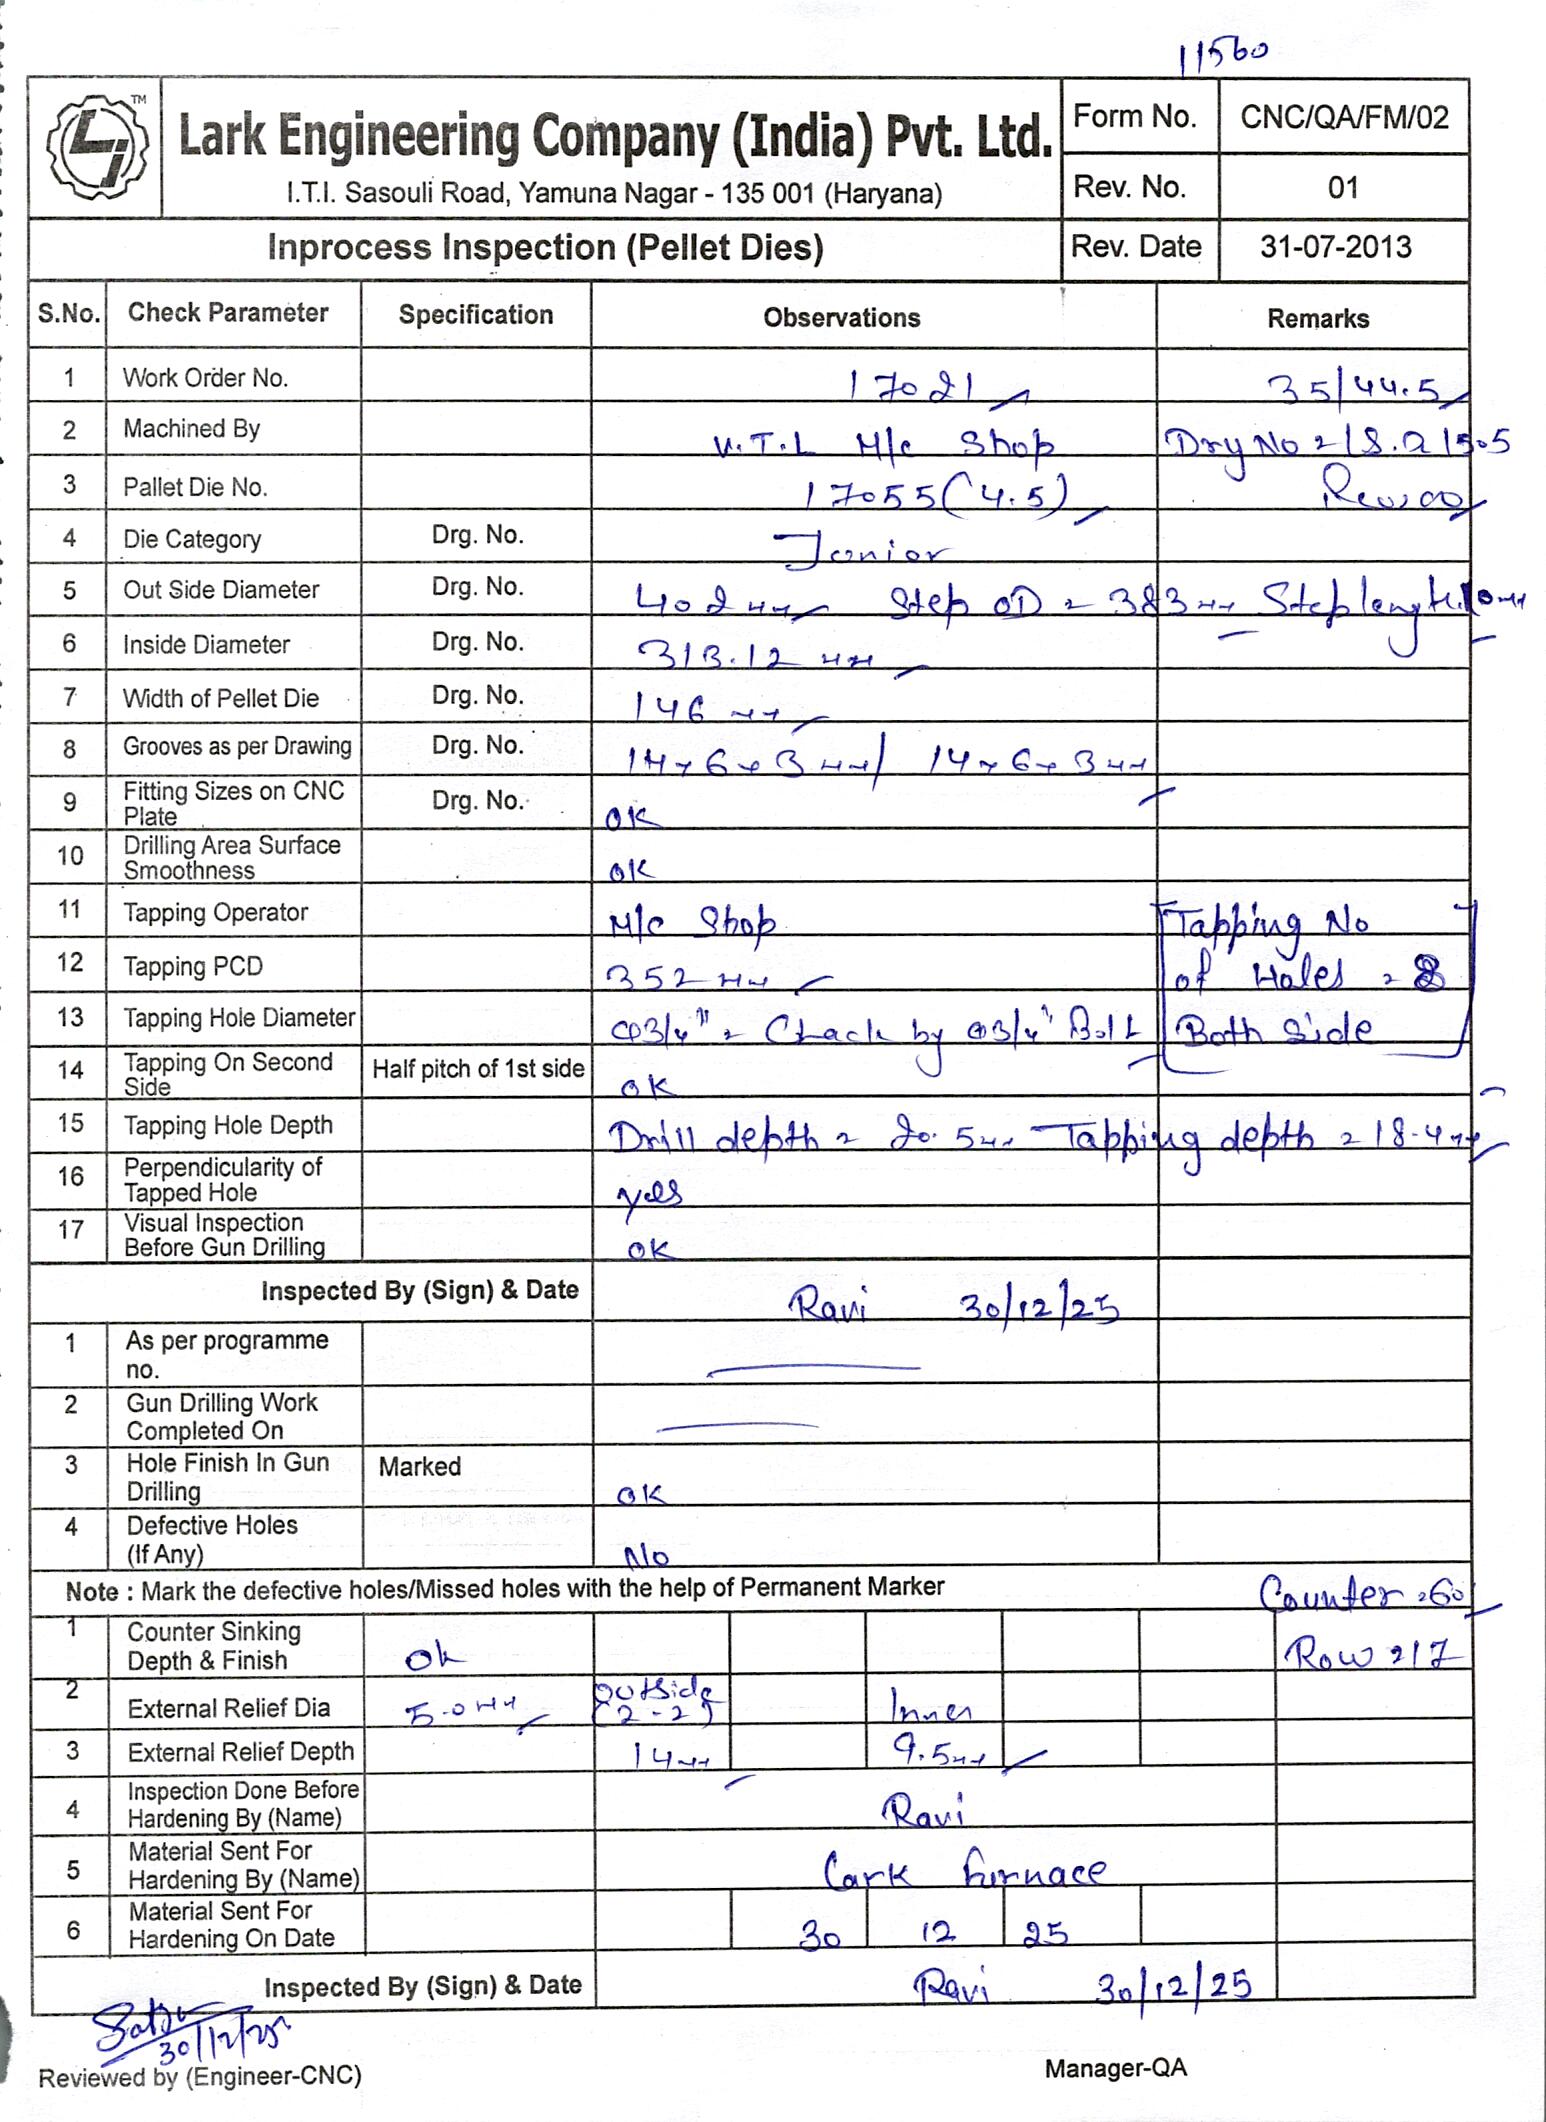 11560
TM
Lark Engineering Company (India) Pvt. Ltd.
I.T.I. Sasouli Road, Yamuna Nagar - 135 001 (Haryana)
Form No. CNC/QA/FM/02
Rev. No. 01
Inprocess Inspection (Pellet Dies)
Rev. Date 31-07-2013
S.No. Check Parameter Specification Observations Remarks
1 Work Order No. 17021 35/44.5
2 Machined By M/c Shop
3 Pallet Die No. 17055(4.5)
4 Die Category Drg. No. Junior
5 Out Side Diameter Drg. No. 402 mm Step OD = 383 mm Step length 10 mm
6 Inside Diameter Drg. No. 313.12 mm
7 Width of Pellet Die Drg. No. 146 mm
8 Grooves as per Drawing Drg. No. 14x6x3 mm/ 14x6x3 mm
9 Fitting Sizes on CNC Plate Drg. No. OK
10 Drilling Area Surface Smoothness OK
11 Tapping Operator M/c Shop Tapping No
12 Tapping PCD 352 mm of Holes = 8
13 Tapping Hole Diameter Φ3/4" = Chack by Φ3/4" Bolt Both Side
14 Tapping On Second Side Half pitch of 1st side OK
15 Tapping Hole Depth Drill depth = 20.5 mm Tapping depth = 18.4 mm
16 Perpendicularity of Tapped Hole yes
17 Visual Inspection Before Gun Drilling OK
Inspected By (Sign) & Date Ravi 30/12/25
1 As per programme no.
2 Gun Drilling Work Completed On
3 Hole Finish In Gun Drilling Marked OK
4 Defective Holes (If Any) No
Note : Mark the defective holes/Missed holes with the help of Permanent Marker Counter = 60
1 Counter Sinking Depth & Finish Ok Row = 17
2 External Relief Dia 5.0 mm Outside (2-2) Inner
3 External Relief Depth 14 mm 9.5 mm
4 Inspection Done Before Hardening By (Name) Ravi
5 Material Sent For Hardening By (Name) Lark furnace
6 Material Sent For Hardening On Date 30 12 25
Inspected By (Sign) & Date Ravi 30/12/25
30/12/25
Reviewed by (Engineer-CNC) Manager-QA